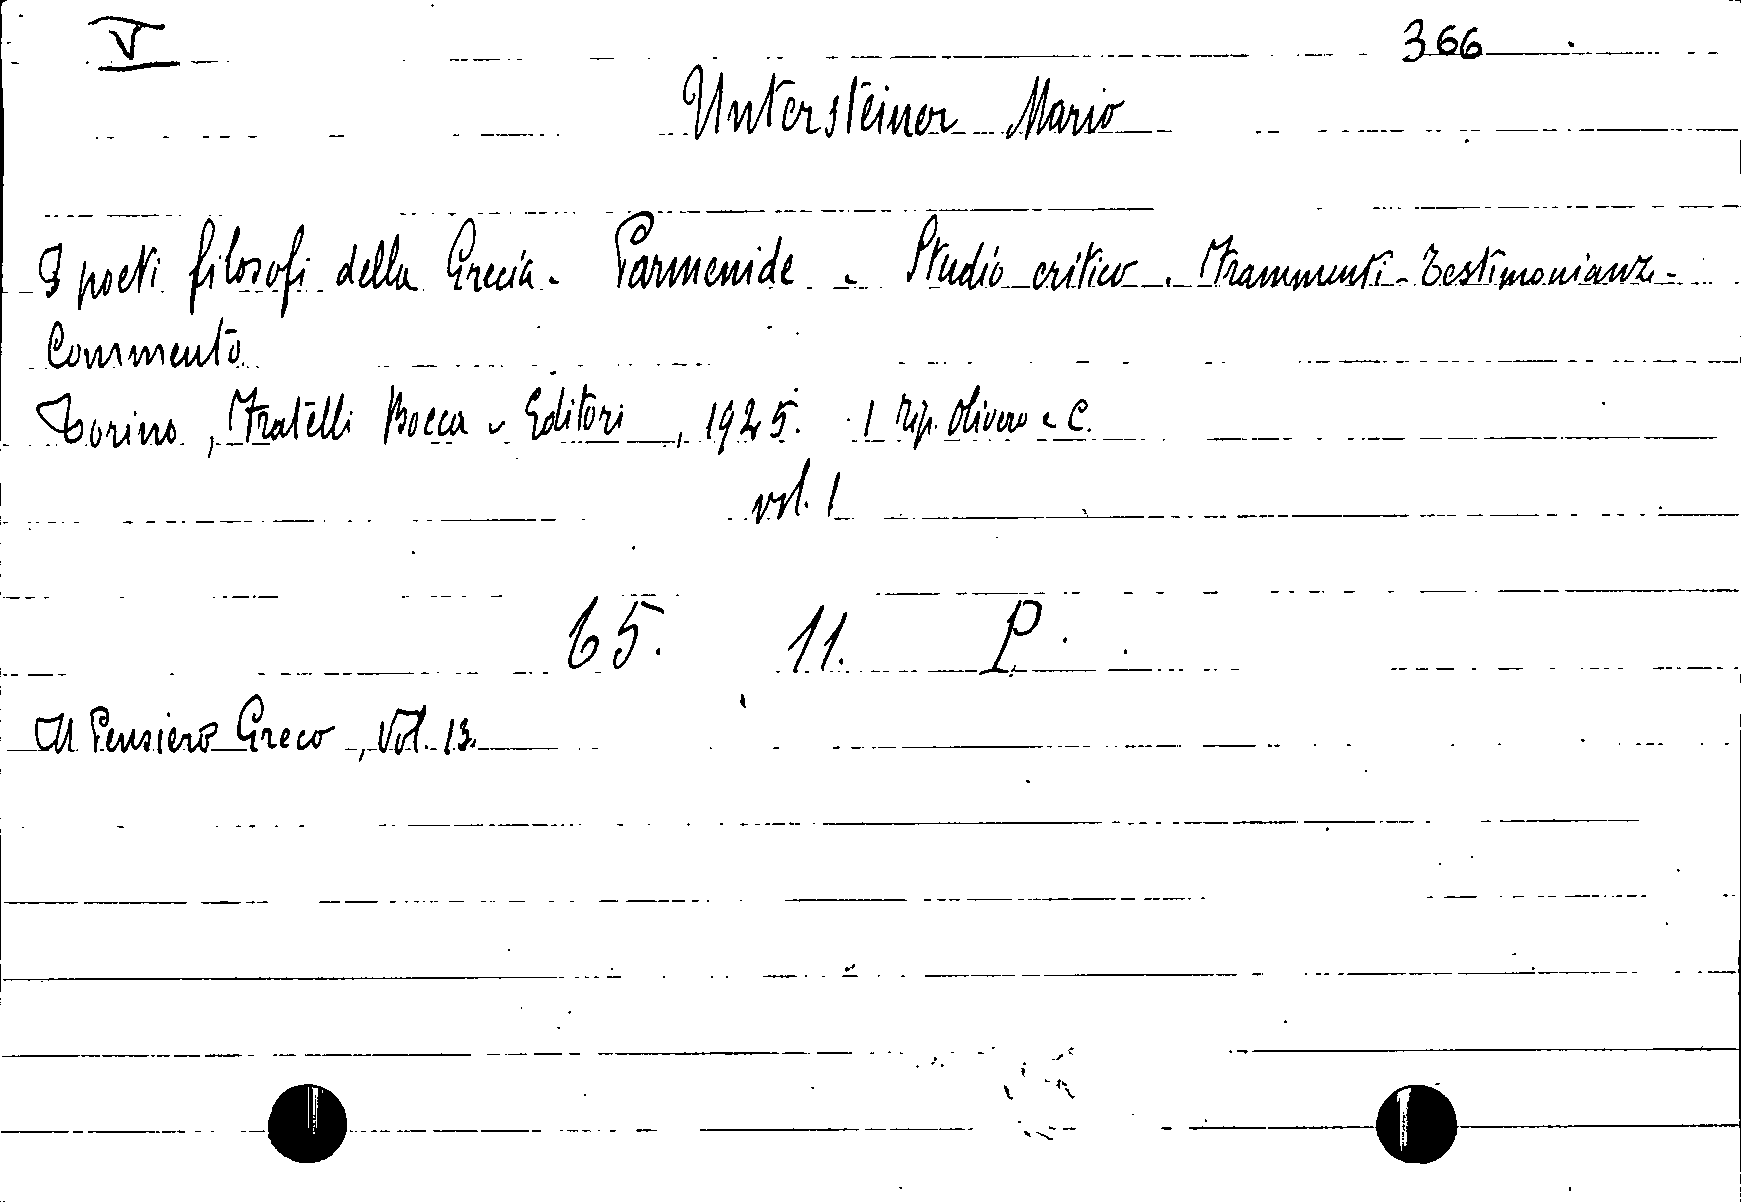 V 366
Untersteiner Mario
I poeti filosofi della Grecia - Parmenide - Studio critico - Frammenti - Testimonianze -
Commento
Torino, Fratelli Bocca - Editori, 1925. 1 Tip. Olivero e C.
vol. 1
65. 11. P.
Il Pensiero Greco, Vol. 13.